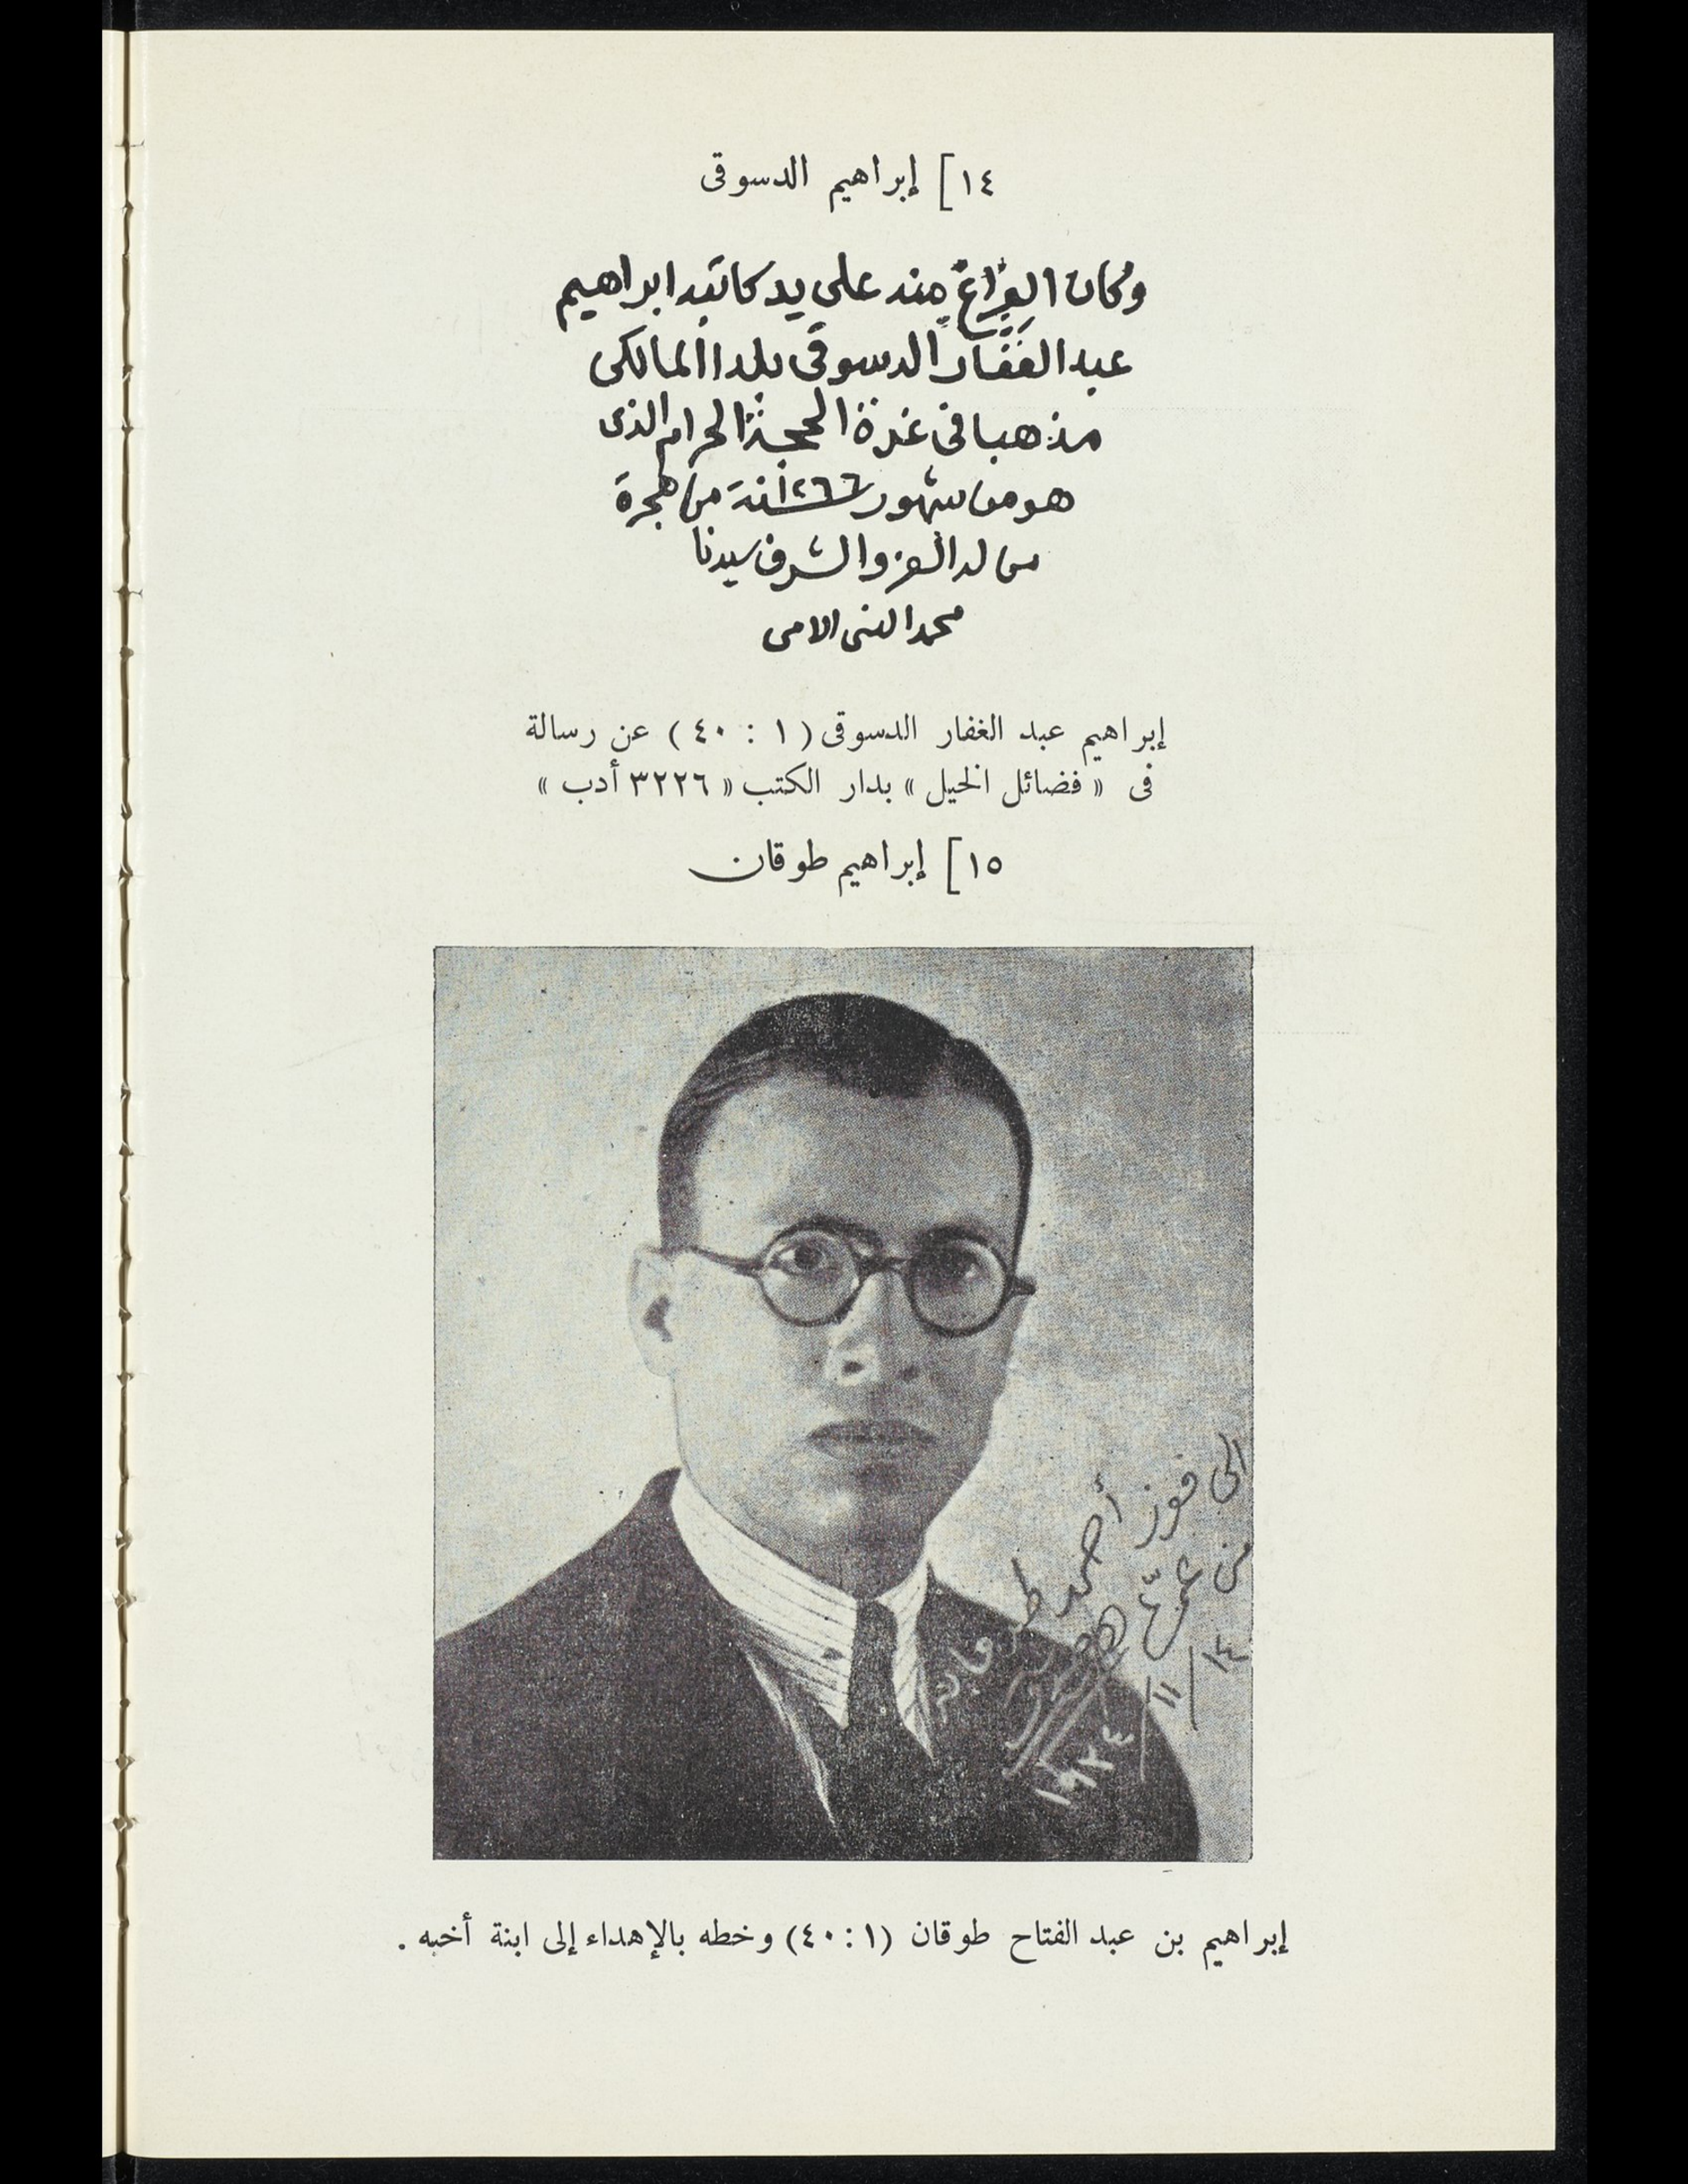 ١٤] إبراهيم الدسوقى
وكان الفراغ منه على يد كاتبه ابراهيم
عبد الغفار الدسوقى بلدا المالكى
مذهبا فى غرة الحجة الحرام الذى
هو من شهور ١٢٦٦ سنة من هجرة
من له العز والشرف سيدنا
محمد النبى الامى
إبراهيم عبد الغفار الدسوقى (١ : ٤٠) عن رسالة
فى « فضائل الخيل » بدار الكتب « ٣٢٢٦ أدب »
١٥] إبراهيم طوقان
إلى فوز أحمد طوقان
من عمّها
ابراهيم
١٤/١١/١٩٣٤
إبراهيم بن عبد الفتاح طوقان (١ : ٤٠) وخطه بالإهداء إلى ابنة أخيه .